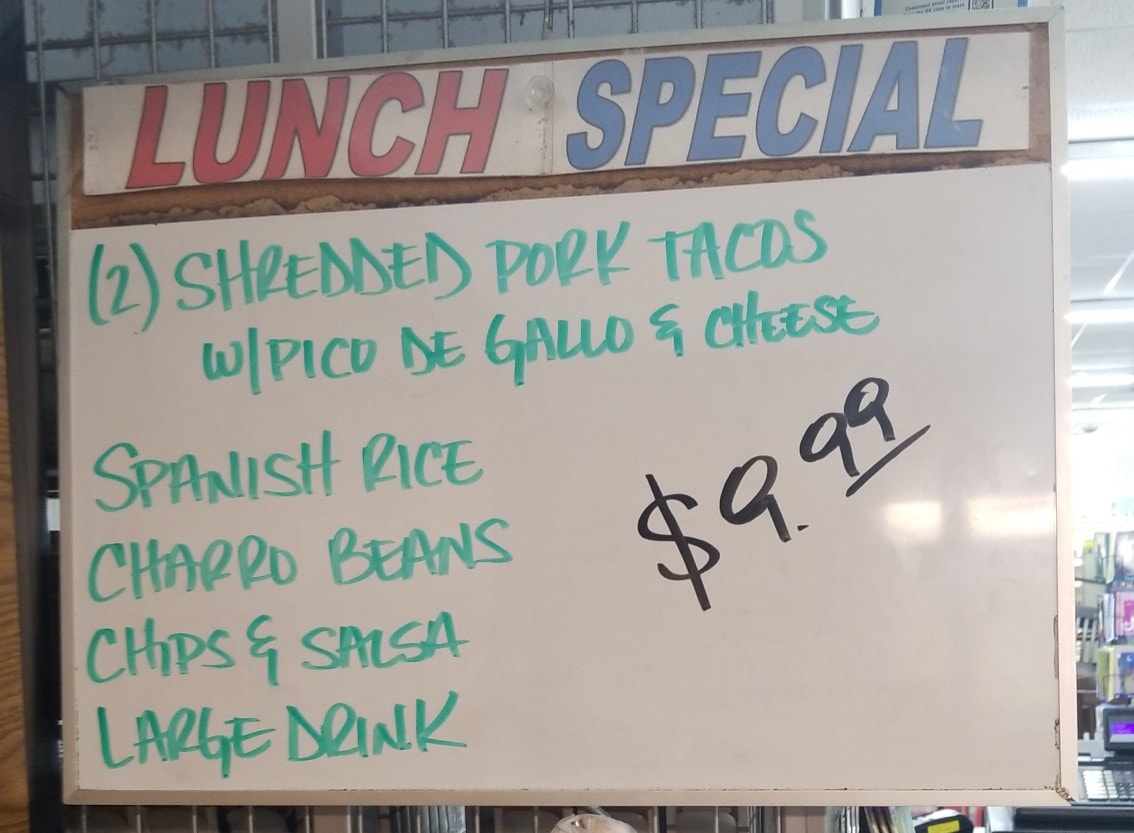 LUNCH SPECIAL
(2) SHREDDED PORK TACOS
W/PICO DE GALLO & CHEESE
SPANISH RICE
$9.99
CHARRO BEANS
CHIPS & SALSA
LARGE DRINK